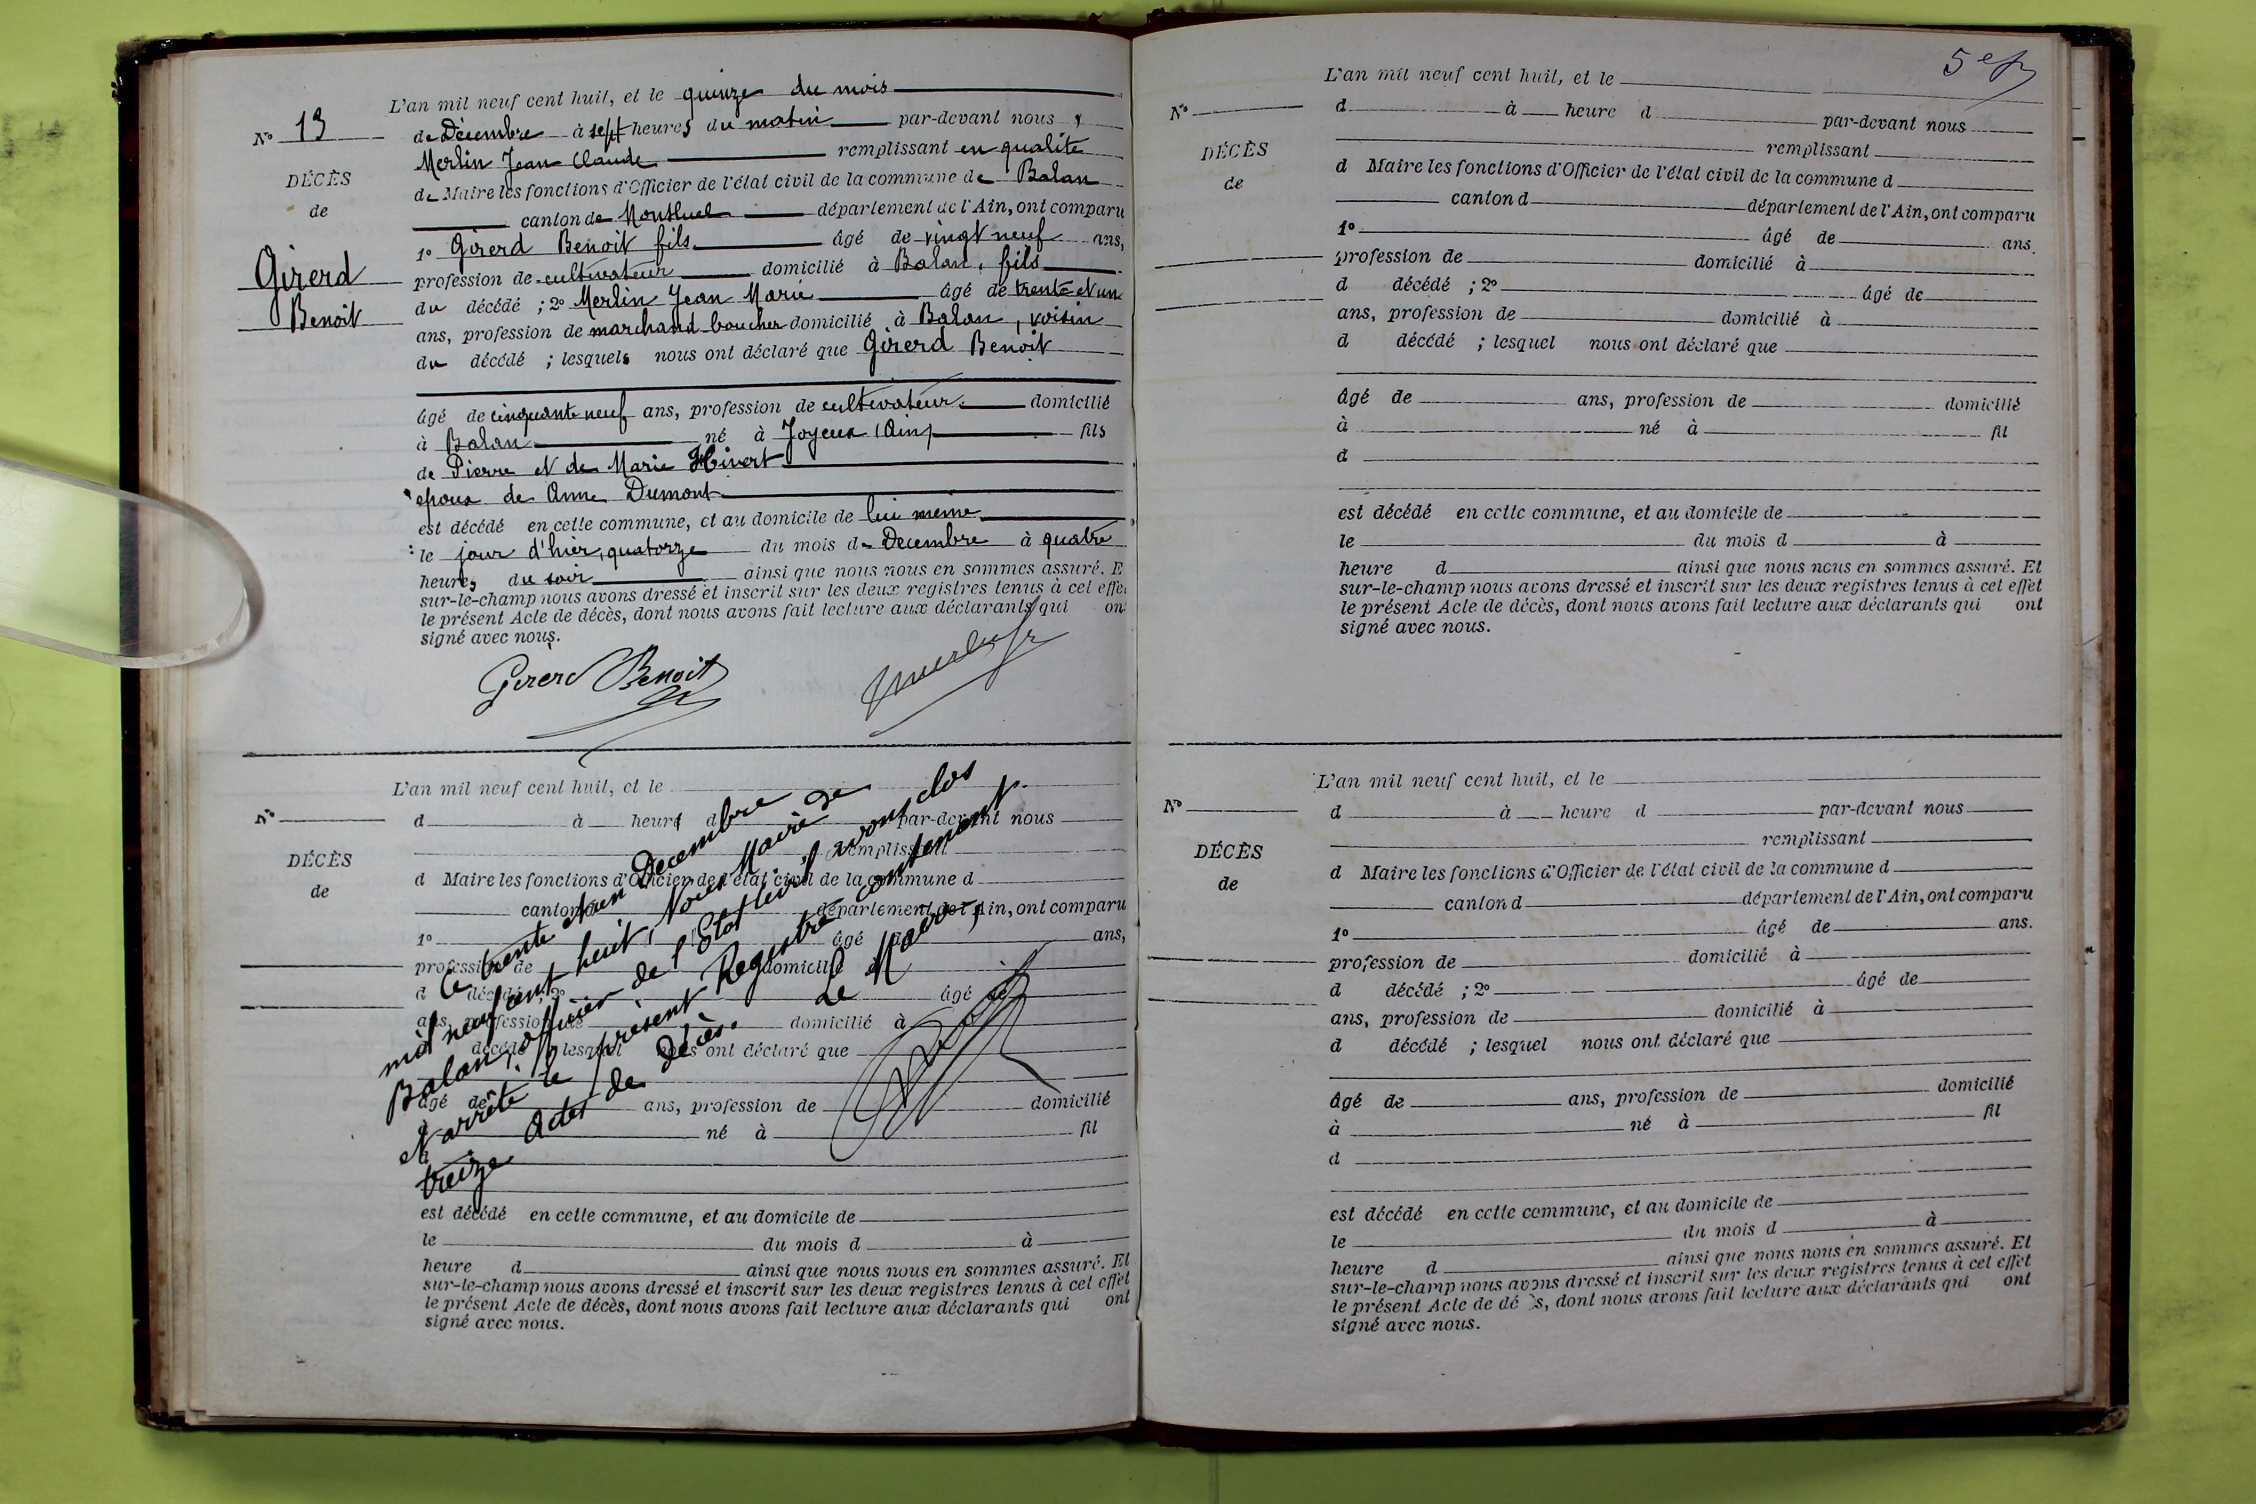 L'an mil neuf cent huit, et le quinze du mois
No 13
de Décembre à sept heures du matin par-devant nous
Merlin Jean Claude remplissant en qualité
DÉCÈS
de Maire les fonctions d'Officier de l'état civil de la commune de Balan
de
canton de Montluel département de l'Ain, ont comparu
1o Girerd Benoit fils âgé de vingt neuf ans,
Girerd
profession de cultivateur domicilié à Balan, fils
Benoit
du décédé ; 2o Merlin Jean Marie âgé de trente et un
ans, profession de marchand boucher domicilié à Balan, voisin
du décédé ; lesquels nous ont déclaré que Girerd Benoit
âgé de cinquante neuf ans, profession de cultivateur domicilié
à Balan né à Joyeux (Ain) fils
de Pierre et de Marie Hivert
époux de Anne Dumont
est décédé en cette commune, et au domicile de lui même
le jour d'hier, quatorze du mois de Decembre à quatre
heures du soir ainsi que nous nous en sommes assuré. E
sur-le-champ nous avons dressé et inscrit sur les deux registres tenus à cet effe
le présent Acte de décès, dont nous avons fait lecture aux déclarants qui on
signé avec nous.
Girerd Benoit
L'an mil neuf cent huit, et le
No
d à heure d par-devant nous
remplissant
DÉCÈS
d Maire les fonctions d'Officier de l'état civil de la commune d
de
canton d département de l'Ain, ont comparu
1o âgé de ans,
profession de domicilié
d décédé ; 2o âgé de
ans, profession de domicilié à
d décédé ; lesquel nous ont déclaré que
âgé de ans, profession de domicilié
à né à fil
d
est décédé en cette commune, et au domicile de
le du mois d à
heure d ainsi que nous nous en sommes assuré. Et
sur-le-champ nous avons dressé et inscrit sur les deux registres tenus à cet effet
le présent Acte de décès, dont nous avons fait lecture aux déclarants qui ont
signé avec nous.
Ce trente et un Decembre
mil neuf cent huit, Nous Maire de
Balan, officier de l'Etat civil avons clos
et arrêté le présent Registre contenant
treize Actes de décès.
Le Maire,
5e
L'an mil neuf cent huit, et le
No
d à heure d par-devant nous
remplissant
DÉCÈS
d Maire les fonctions d'Officier de l'état civil de la commune d
de
canton d département de l'Ain, ont comparu
1o âgé de ans.
profession de domicilié à
d décédé ; 2o âgé de
ans, profession de domicilié à
d décédé ; lesquel nous ont déclaré que
âgé de ans, profession de domicilié
à né à fil
d
est décédé en cette commune, et au domicile de
le du mois d à
heure d ainsi que nous nous en sommes assuré. Et
sur-le-champ nous avons dressé et inscrit sur les deux registres tenus à cet effet
le présent Acte de décès, dont nous avons fait lecture aux déclarants qui ont
signé avec nous.
L'an mil neuf cent huit, et le
No
d à heure d par-devant nous
remplissant
DÉCÈS
d Maire les fonctions d'Officier de l'état civil de la commune d
de
canton d département de l'Ain, ont comparu
1o âgé de ans.
profession de domicilié à
d décédé ; 2o âgé de
ans, profession de domicilié à
d décédé ; lesquel nous ont déclaré que
âgé de ans, profession de domicilié
à né à fil
d
est décédé en cette commune, et au domicile de
le du mois d à
heure d ainsi que nous nous en sommes assuré. Et
sur-le-champ nous avons dressé et inscrit sur les deux registres tenus à cet effet
le présent Acte de dé s, dont nous avons fait lecture aux déclarants qui ont
signé avec nous.